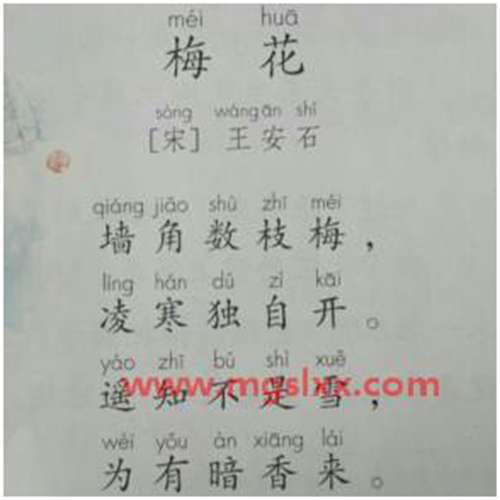 méi huā
梅 花
sòng wáng ān shí
[宋] 王 安 石
qiáng jiǎo shù zhī méi
墙 角 数 枝 梅 ，
líng hán dú zì kāi
凌 寒 独 自 开 。
yáo zhī bú shì xuě
遥 知 不 是 雪 ，
www.mgslxx.com
wèi yǒu àn xiāng lái
为 有 暗 香 来 。